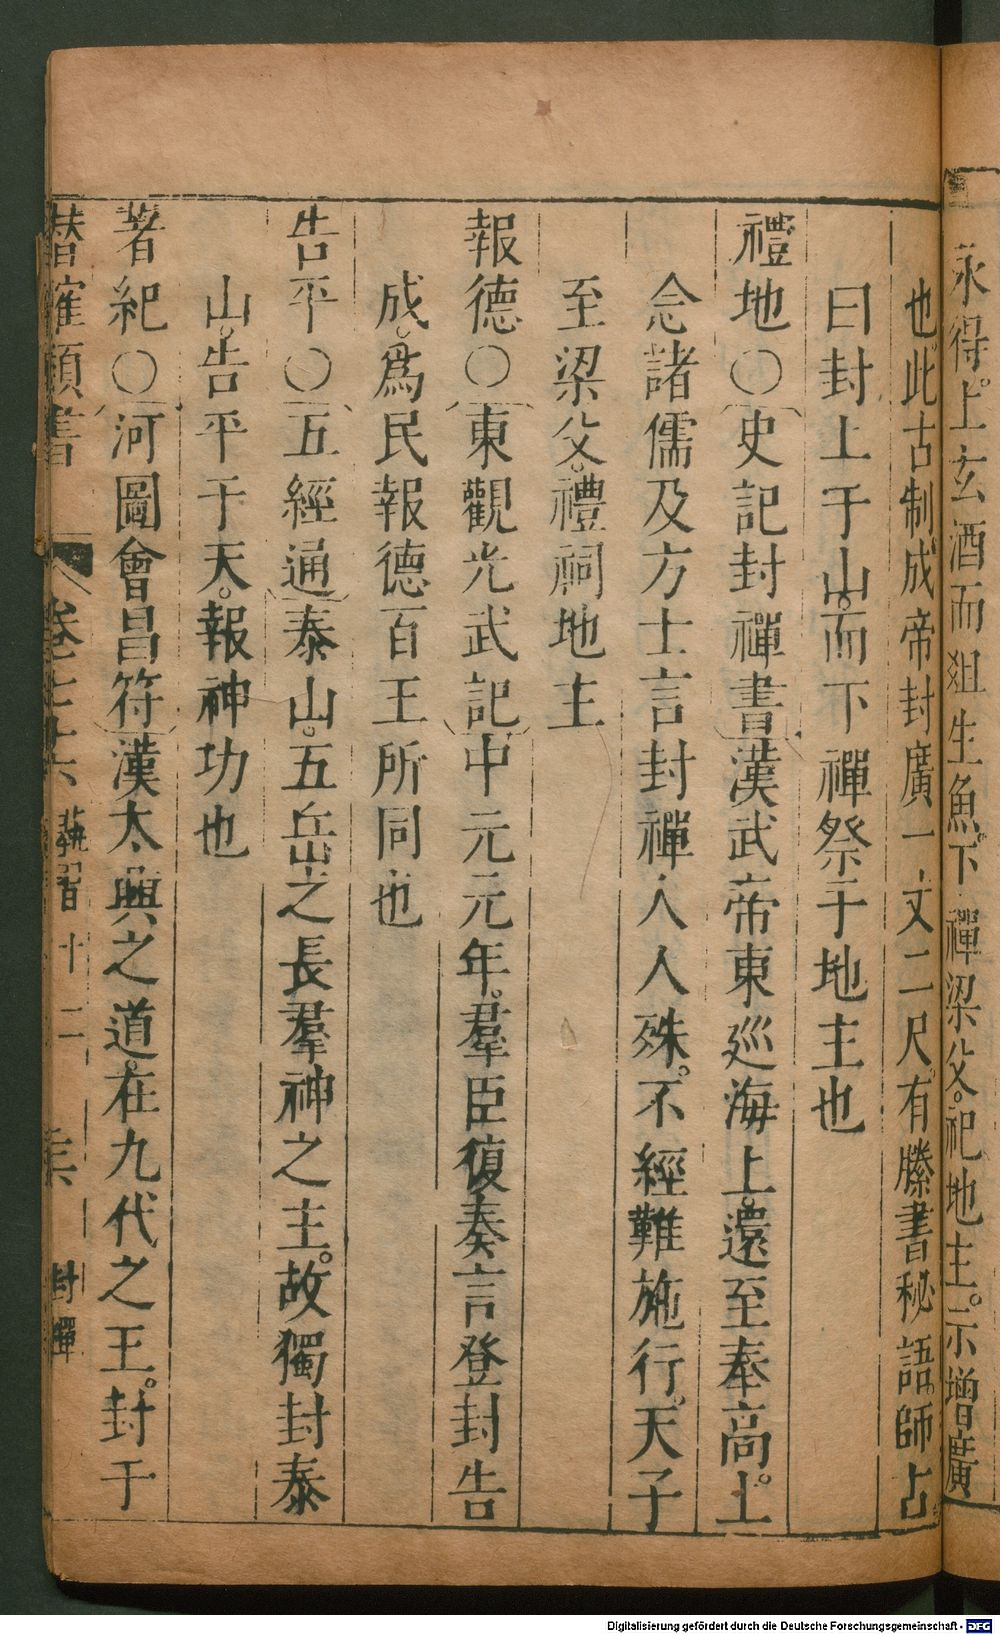 永得。上玄酒而俎生魚。下禪梁父。祀地主。示增廣
也。此古制成帝封廣一丈二尺。有縢書秘語。師占
曰封上于山。而下禪祭于地主也
禮地○史記封禪書漢武帝東巡海上。還至奉高。上
念諸儒及方士言封禪人人殊。不經難施行。天子
至梁父。禮祠地主
報德○東觀光武記中元元年。羣臣復奏言登封告
成。為民報德百王所同也
告平○五經通泰山。五岳之長羣神之主。故獨封泰
山。告平于天。報神功也
著紀○河圖會昌符漢太興之道。在九代之王。封于
卷七十六
十二
封禪
Digitalisierung gefördert durch die Deutsche Forschungsgemeinschaft - DFG